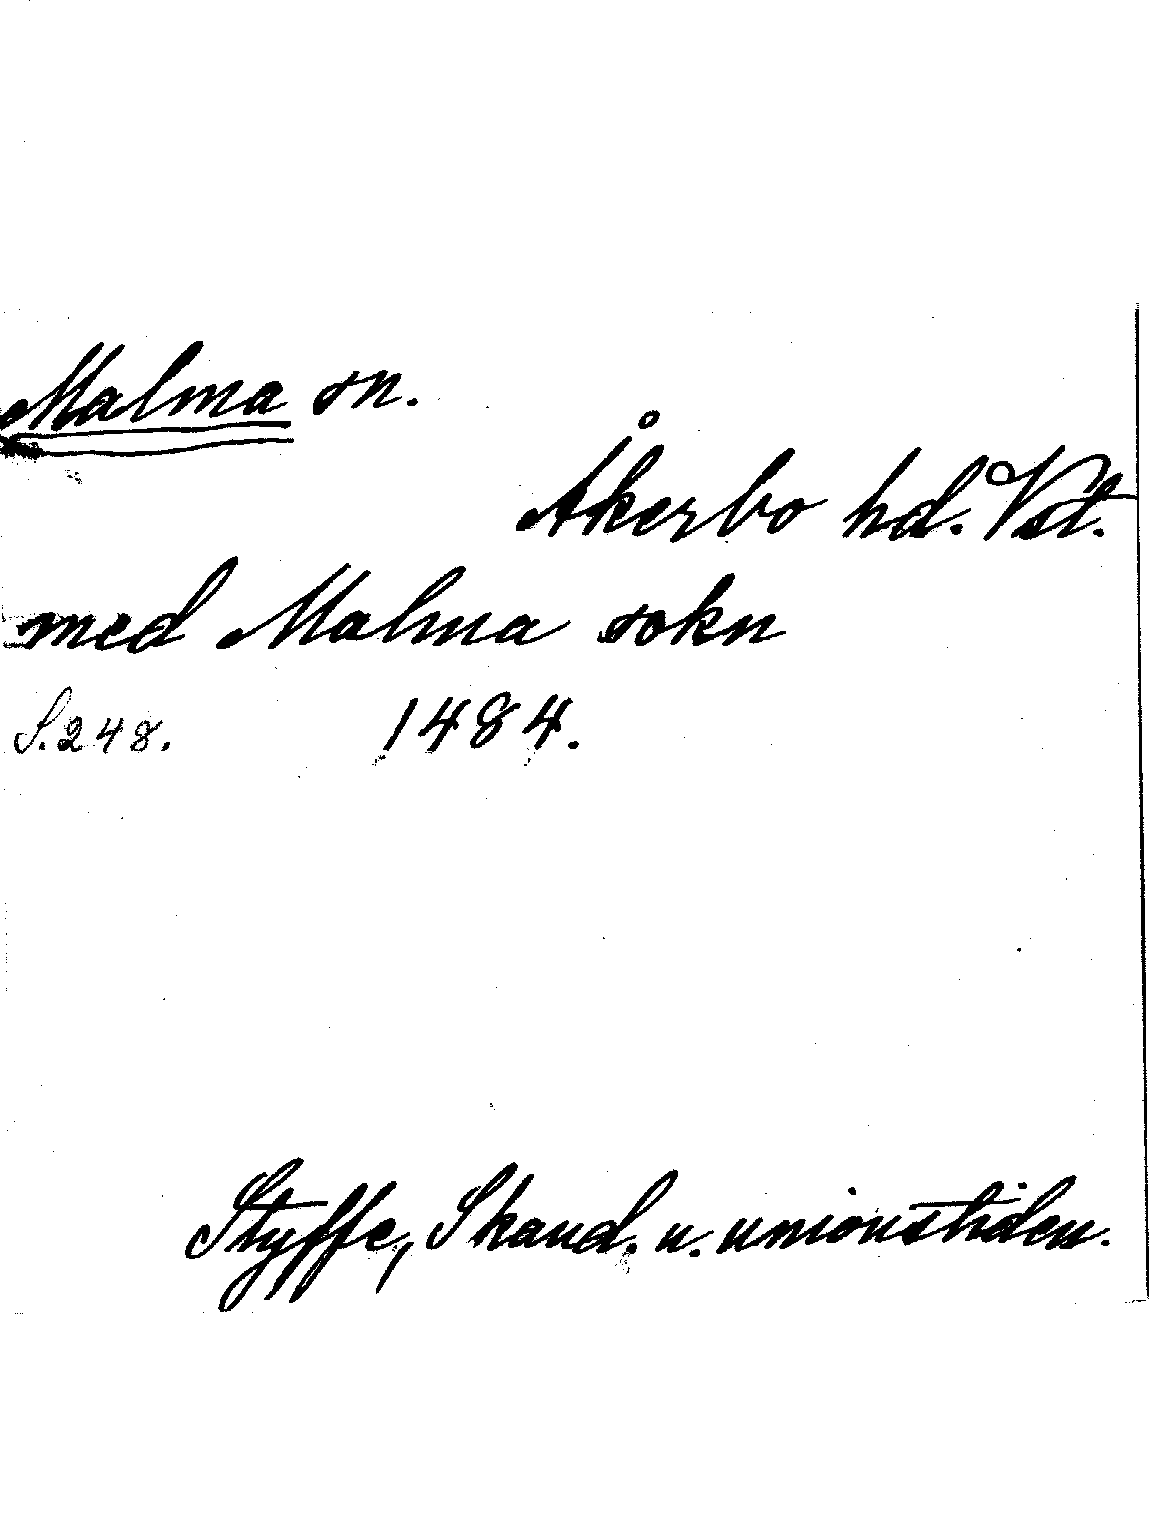 Malma sn.
Åkerbo hd. Vstl.
med Malma sokn
S. 248. 1484.
Styffe, Skand. u. unionstiden.